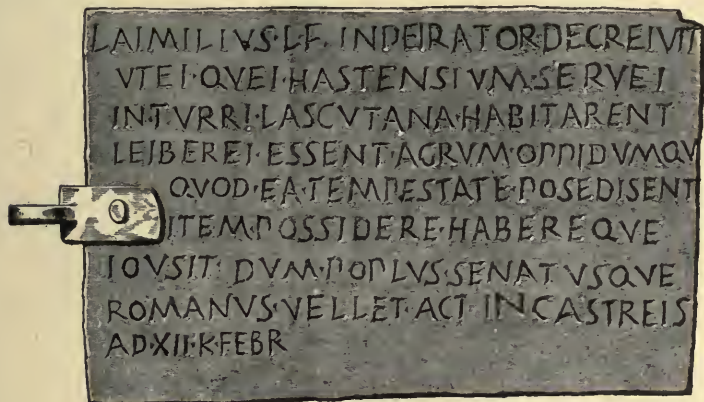 L·AIMILIVS·L·F· INPEIRATOR·DECREIVIT
VTEI·QVEI·HASTENSIVM·SERVEI
IN·TVRRI·LASCVTANA·HABITARENT
LEIBEREI·ESSENT·AGRVM·OPPIDVMQV
QVOD·EA·TEMPESTATE·POSEDISENT
ITEM·POSSIDERE·HABEREQVE
IOVSIT·DVM·POPLVS·SENATVSQVE
ROMANVS·VELLET·ACT·IN CASTREIS
AD·XII·K·FEBR